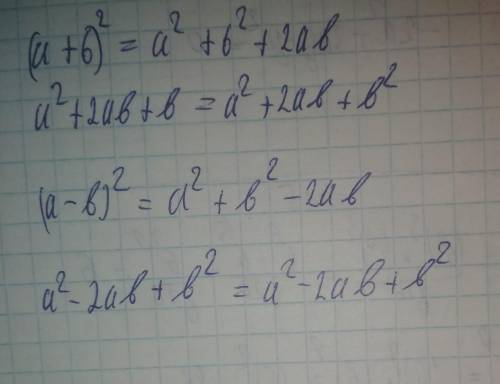 (a + b)² = a² + b² + 2ab
a² + 2ab + b = a² + 2ab + b²
(a - b)² = a² + b² - 2ab
a² - 2ab + b² = a² - 2ab + b²